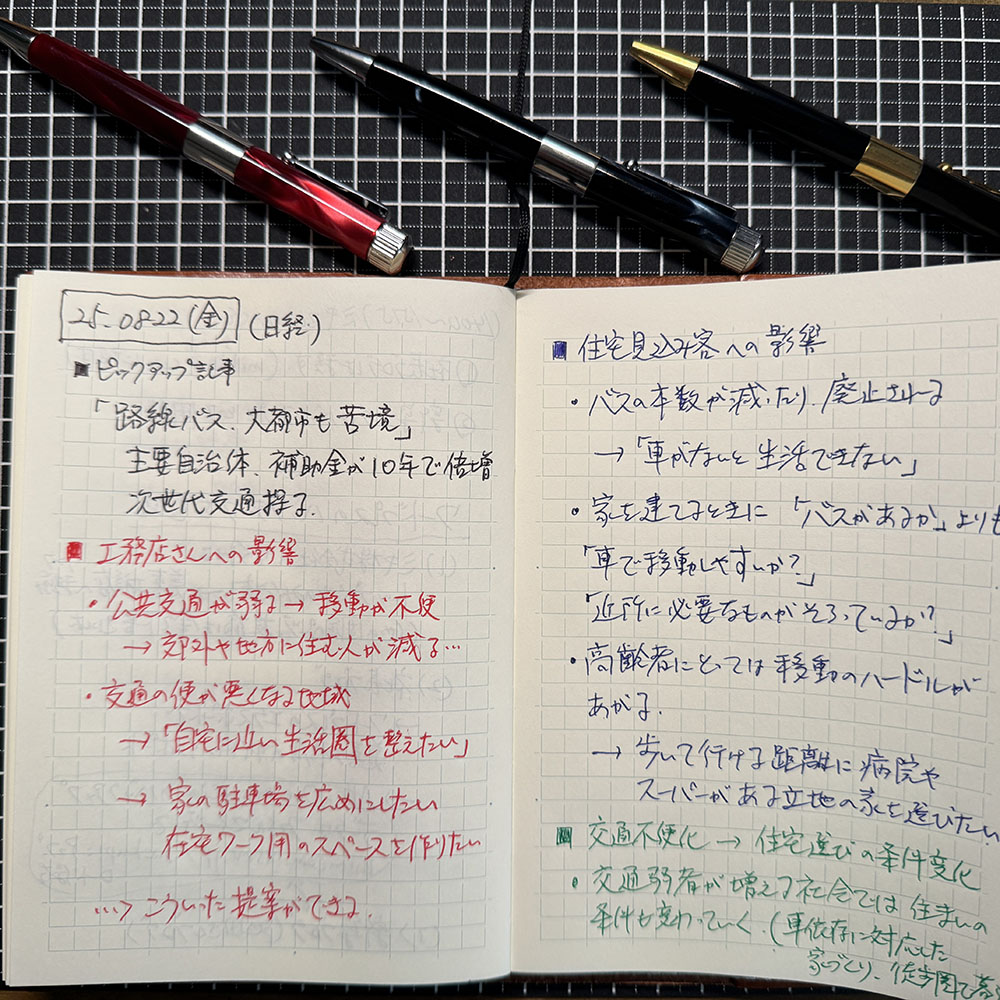 25.0822(金) (日経)
■ピックアップ記事
「路線バス、大都市も苦境」
主要自治体、補助金が10年で倍増
次世代交通探る.
■ 工務店さんへの影響
・公共交通が弱る→移動が不便
→ 郊外や地方に住む人が減る…
・交通の便が悪くなる地域
→「自宅に近い生活圏を整えたい」
→ 家の駐車場を広めにしたい
在宅ワーク用のスペースを作りたい
…→ こういった提案ができる.
■ 住宅見込み客への影響
・バスの本数が減ったり、廃止される
→「車がないと生活できない」
・家を建てるときに「バスがあるか」よりも
「車で移動しやすいか?」
「近所に必要なものがそろっているか?」
・高齢者にとっては移動のハードルが
あがる.
→ 歩いて行ける距離に病院や
スーパーがある立地の家を選びたい
■ 交通不便化 → 住宅選びの条件変化
・交通弱者が増える社会では住まいの
条件も変わっていく.(車依存に対応した
家づくり、徒歩圏で暮